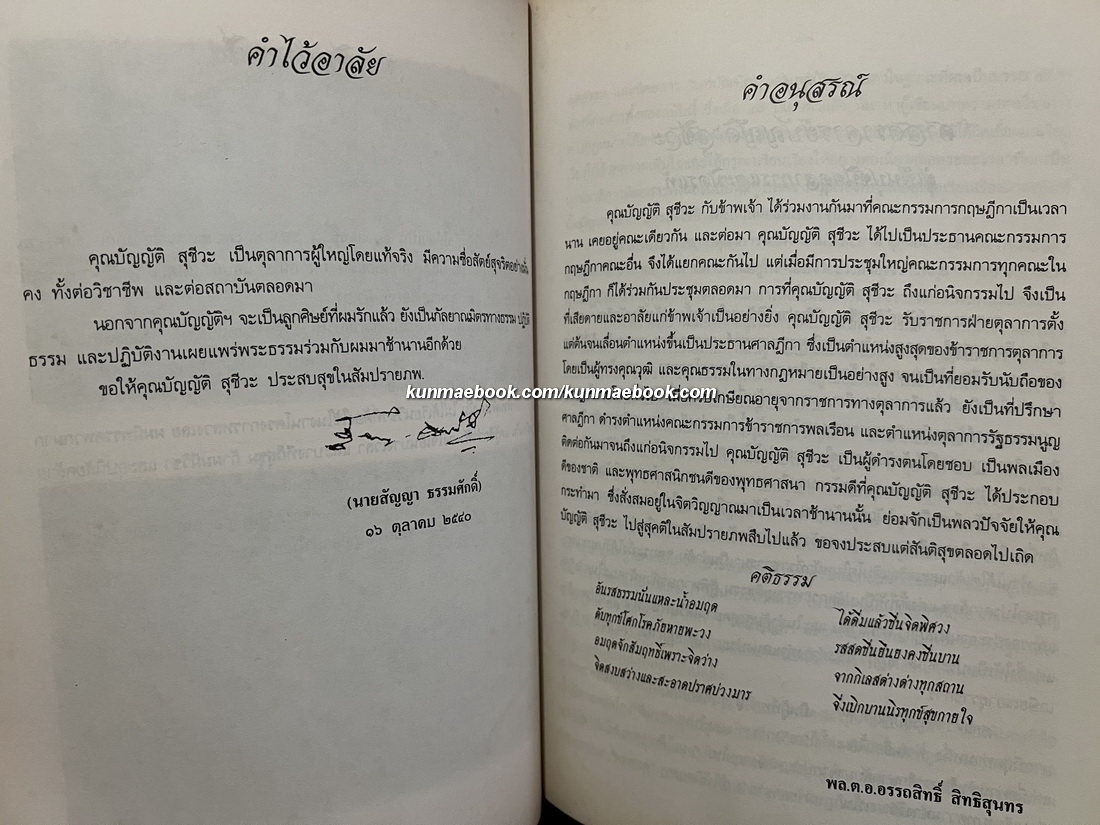 คำไว้อาลัย
คุณบัญญัติ สุชีวะ เป็นตุลาการผู้ใหญ่โดยแท้จริง มีความซื่อสัตย์สุจริตอย่างมั่น
คง ทั้งต่อวิชาชีพ และต่อสถาบันตลอดมา
นอกจากคุณบัญญัติฯ จะเป็นลูกศิษย์ที่ผมรักแล้ว ยังเป็นกัลยาณมิตรทางธรรม ปฏิบัติ
ธรรม และปฏิบัติงานเผยแพร่พระธรรมร่วมกับผมมาช้านานอีกด้วย
ขอให้คุณบัญญัติ สุชีวะ ประสบสุขในสัมปรายภพ.
(นายสัญญา ธรรมศักดิ์)
๑๖ ตุลาคม ๒๕๔๐
คำอนุสรณ์
คุณบัญญัติ สุชีวะ กับข้าพเจ้า ได้ร่วมงานกันมาที่คณะกรรมการกฤษฎีกาเป็นเวลา
นาน เคยอยู่คณะเดียวกัน และต่อมา คุณบัญญัติ สุชีวะ ได้ไปเป็นประธานคณะกรรมการ
กฤษฎีกาคณะอื่น จึงได้แยกคณะกันไป แต่เมื่อมีการประชุมใหญ่คณะกรรมการทุกคณะใน
กฤษฎีกา ก็ได้ร่วมกันประชุมตลอดมา การที่คุณบัญญัติ สุชีวะ ถึงแก่อนิจกรรมไป จึงเป็น
ที่เสียดายและอาลัยแก่ข้าพเจ้าเป็นอย่างยิ่ง คุณบัญญัติ สุชีวะ รับราชการฝ่ายตุลาการตั้ง
แต่ต้นจนเลื่อนตำแหน่งขึ้นเป็นประธานศาลฎีกา ซึ่งเป็นตำแหน่งสูงสุดของข้าราชการตุลาการ
โดยเป็นผู้ทรงคุณวุฒิ และคุณธรรมในทางกฎหมายเป็นอย่างสูง จนเป็นที่ยอมรับนับถือของ
kunmaebook.com/kunmaebook.com
เกษียณอายุจากราชการทางตุลาการแล้ว ยังเป็นที่ปรึกษา
ศาลฎีกา ดำรงตำแหน่งคณะกรรมการข้าราชการพลเรือน และตำแหน่งตุลาการรัฐธรรมนูญ
ติดต่อกันมาจนถึงแก่อนิจกรรมไป คุณบัญญัติ สุชีวะ เป็นผู้ดำรงตนโดยชอบ เป็นพลเมือง
ดีของชาติ และพุทธศาสนิกชนดีของพุทธศาสนา กรรมดีที่คุณบัญญัติ สุชีวะ ได้ประกอบ
กระทำมา ซึ่งสั่งสมอยู่ในจิตวิญญาณมาเป็นเวลาช้านานนั้น ย่อมจักเป็นพลวปัจจัยให้คุณ
บัญญัติ สุชีวะ ไปสู่สุคติในสัมปรายภพสืบไปแล้ว ขอจงประสบแต่สันติสุขตลอดไปเถิด
คติธรรม
อันรสธรรมนั่นแหละน้ำอมฤต ได้ดื่มแล้วชื่นจิตพิศวง
ดับทุกข์โศกโรคภัยหายพะวง รสสดชื่นยืนยงคงชื่นบาน
อมฤตจักสัมฤทธิ์เพราะจิตว่าง จากกิเลสต่างต่างทุกสถาน
จิตสงบสว่างและสะอาดปราศบ่วงมาร จึ่งเบิกบานนิรทุกข์สุขกายใจ
พล.ต.อ.อรรถสิทธิ์ สิทธิสุนทร